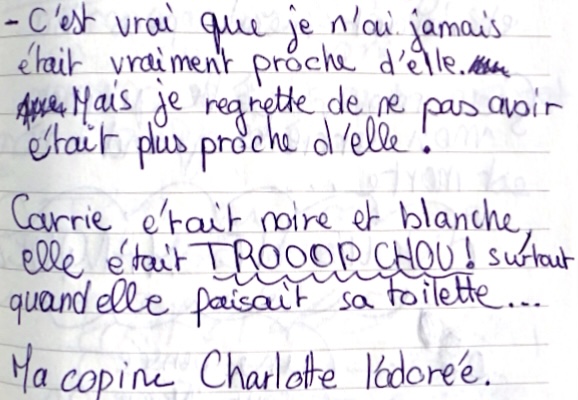 - C'est vrai que je n'ai jamais
était vraiment proche d'elle.
Mais je regrette de ne pas avoir
était plus proche d'elle !
Carrie était noire et blanche,
elle était TROOOP CHOU! surtout
quand elle faisait sa toilette...
Ma copine Charlotte l'adorée.